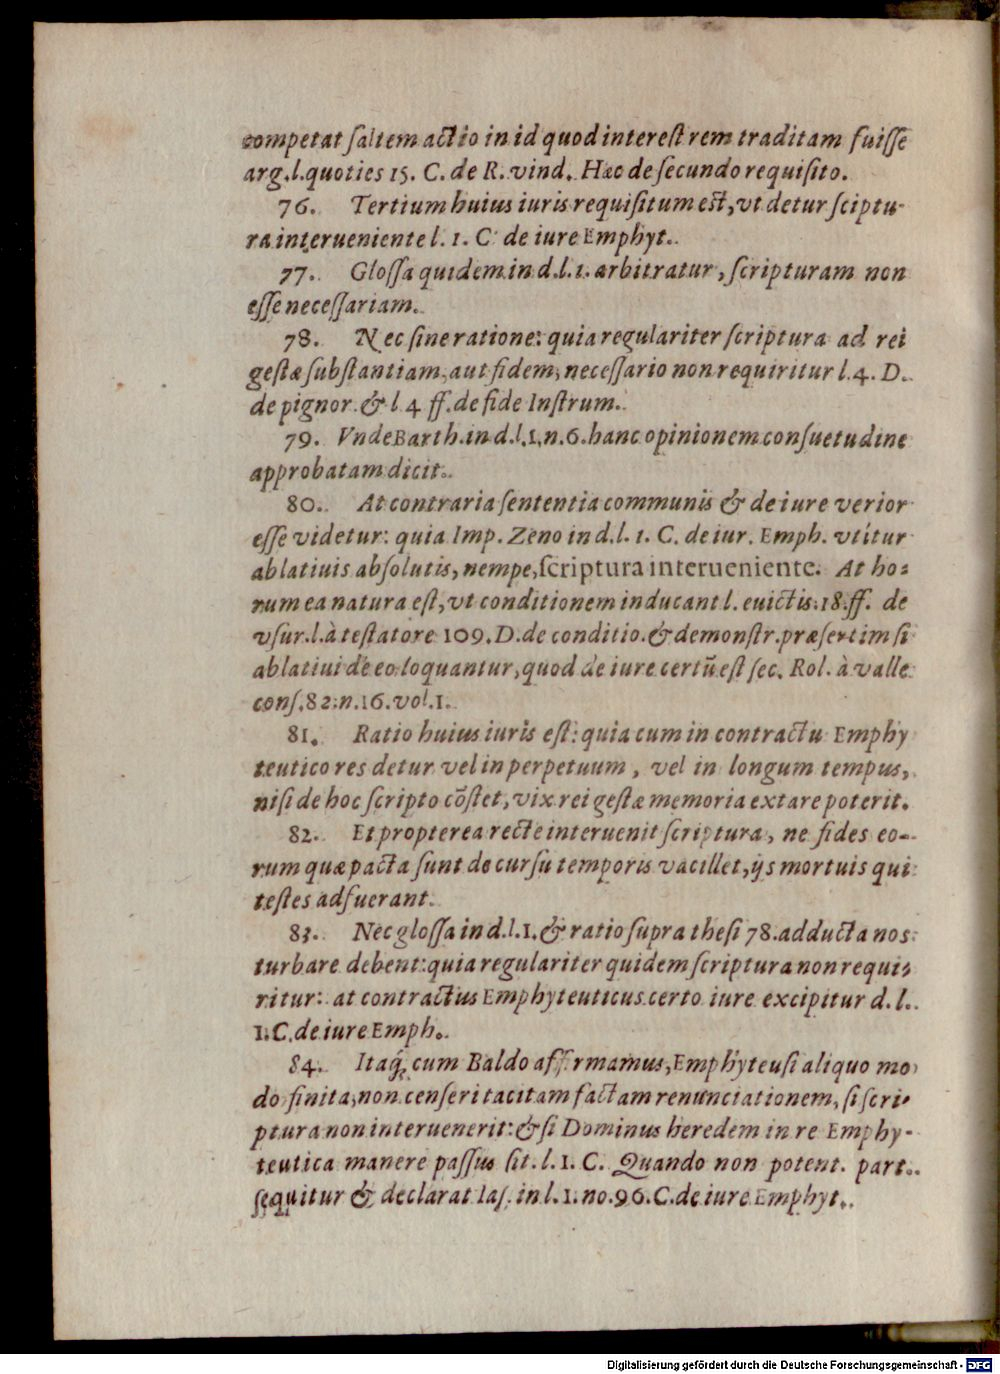 competat ſaltem actio in id quod intereſt rem traditam fuiſſe
arg.l.quoties 15. C. de R. vind. Hæc de ſecundo requiſito.
76. Tertium huius iuris requiſitum eſt, vt detur ſciptu-
ra interueniente l. 1. C de iure Emphyt.
77. Gloſſa quidem in d.l.1. arbitratur, ſcripturam non
eſſe neceſſariam.
78. Nec ſine ratione: quia regulariter ſcriptura ad rei
geſtæ ſubſtantiam, aut fidem, neceſſario non requiritur l.4. D.
de pignor. & l 4 ff. de fide Inſtrum.
79. Vnde Barth. in d.l.1.n.6. hanc opinionem conſuetudine
approbatam dicit.
80. At contraria ſententia communis & de iure verior
eſſe videtur: quia Imp. Zeno in d.l. 1. C. de iur. Emph. vtitur
ablatiuis abſolutis, nempe, ſcriptura interueniente. At ho-
rum ea natura eſt, vt conditionem inducant l. euictis.18.ff. de
vſur.l.à teſtatore 109. D. de conditio. & demonſtr. præſertim ſi
ablatiui de eo loquantur, quod de iure certũ eſt ſec. Rol. à valle
conſ.82.n.16.vol.1.
81. Ratio huius iuris eſt: quia cum in contractu Emphy
teutico res detur vel in perpetuum, vel in longum tempus,
niſi de hoc ſcripto cõſtet, vix rei geſtæ memoria extare poterit.
82. Et propterea recte interuenit ſcriptura, ne fides eo-
rum quæ pacta ſunt de curſu temporis vacillet, ijs mortuis qui
teſtes adfuerant.
83. Nec gloſſa in d.l.1. & ratio ſupra theſi 78. adducta nos
turbare debent: quia regulariter quidem ſcriptura non requi-
ritur: at contractus Emphyteuticus certo iure excipitur d. l.
1. C. de iure Emph.
84. Itaq́; cum Baldo affirmamus, Emphyteuſi aliquo mo
do finita, non cenſeri tacitam factam renunciationem, ſi ſcri-
ptura non interuenerit: & ſi Dominus heredem in re Emphy-
teutica manere paſſus ſit. l. 1. C. Quando non potent. part.
ſequitur & declarat Iaſ. in l. 1. no. 96. C. de iure Emphyt.
Digitalisierung gefördert durch die Deutsche Forschungsgemeinschaft - DFG